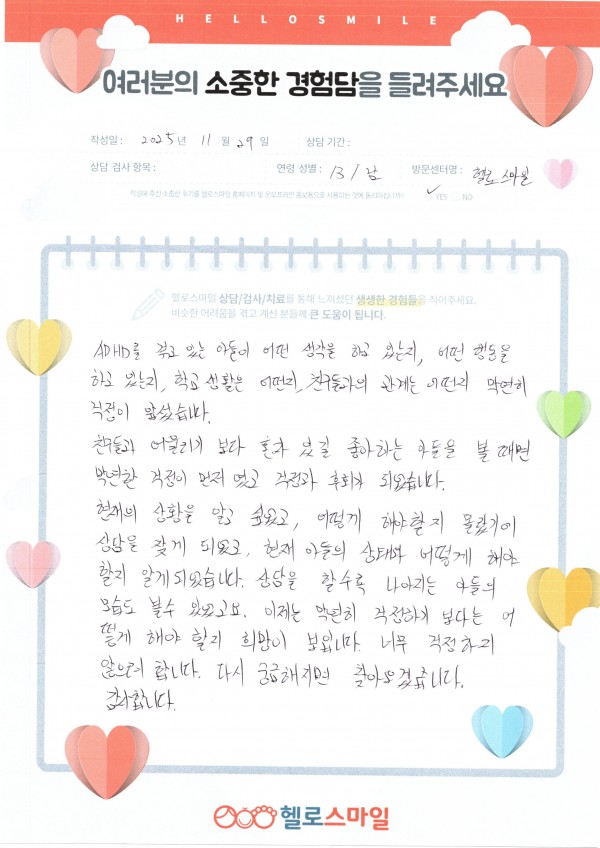 HELLOSMILE
여러분의 소중한 경험담을 들려주세요
작성일 : 2025년 11월 29일 상담 기간 :
상담 검사 항목 : 연령 성별 : 13 / 남 방문센터명 : 헬로스마일
작성해 주신 소중한 후기를 헬로스마일 홈페이지 및 온오프라인 홍보용으로 사용하는 것에 동의하십니까? YES NO
헬로스마일 상담/검사/치료를 통해 느끼셨던 생생한 경험들을 적어주세요.
비슷한 어려움을 겪고 계신 분들께 큰 도움이 됩니다.
ADHD를 겪고 있는 아들이 어떤 생각을 하고 있는지, 어떤 행동을
하고 있는지, 학교생활은 어떤지, 친구들과의 관계는 어떤지 막연히
걱정이 앞섰습니다.
친구들과 어울리기 보다 혼자 있길 좋아하는 아들을 볼 때면
막연한 걱정이 먼저 였고 걱정과 후회가 되었습니다.
현재의 상황을 알고 싶었고, 어떻게 해야할지 몰랐기에
상담을 찾게 되었고, 현재 아들의 상태와 어떻게 해야
할지 알게되었습니다. 상담을 할수록 나아지는 아들의
모습도 볼수 있었고요. 이제는 막연히 걱정하기 보다는 어
떻게 해야 할지 희망이 보입니다. 너무 걱정하지
않으려 합니다. 다시 궁금해지면 찾아오겠습니다.
감사합니다.
헬로스마일